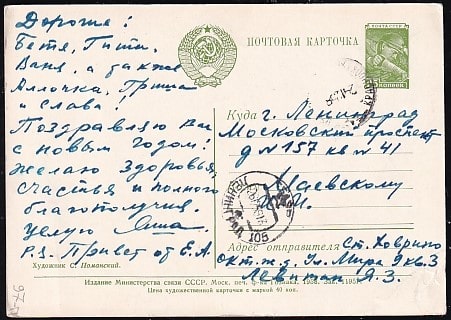 Дорогие!
Бетя, Гитя,
Ваня, а также
Аллочка, Гриша
и Слава!
Поздравляю Вас
с новым годом!
Желаю здоровья,
счастья и полного
благополучия.
Целую Яша.
P.S. Привет от Е.А.
Художник С. Поманский.
ПОЧТОВАЯ КАРТОЧКА
ПОЧТА СССР
Куда г. Ленинград
Московский проспект
д №157 кв №41
Каевскому
Адрес отправителя ст. Ховрино
Окт. ж.д. Ул. Мира 9 кв. 3
Левитан Я.З.
Издание Министерства связи СССР. Моск. печ. ф-ка Гознака. 1958. Зак. 11957.
Цена художественной карточки с маркой 40 коп.